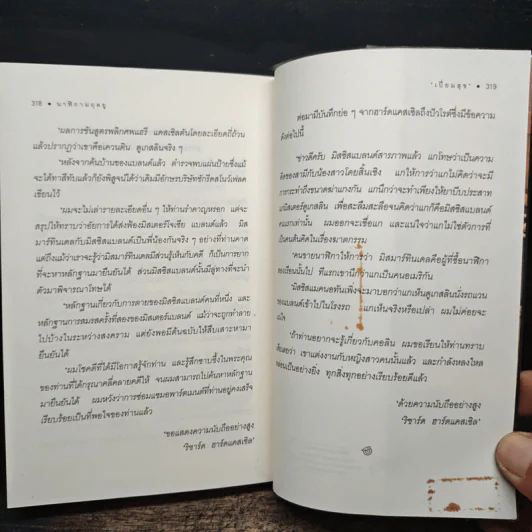 318 • นาฬิกามฤตยู
'ผลการชันสูตรพลิกศพแฮรี แคสเชิลตันโดยละเอียดถี่ถ้วน
แล้วปรากฏว่าเขาคือเควนติน ดูเกสลินจริง ๆ
'หลังจากค้นบ้านของแบลนด์แล้ว ตำรวจพบแผ่นป้ายซึ่งแม้
จะได้ทาสีทับแล้วก็ยังพิสูจน์ได้ว่าเดิมมีอักษรบริษัทซักรีดสโนว์เฟลค
เขียนไว้
'ผมจะไม่เล่ารายละเอียดอื่น ๆ ให้ท่านรำคาญหรอก แต่จะ
สรุปให้ทราบว่าอัยการได้ส่งฟ้องมิสเตอร์โจเซีย แบลนด์แล้ว มิส
มาร์ทินเดลกับมิสซิสแบลนด์เป็นพี่น้องกันจริง ๆ อย่างที่ท่านคาด
แต่ถึงแม้ว่าเราจะรู้ว่ามิสมาร์ทินเดลมีส่วนรู้เห็นกับคดี ก็เป็นการยาก
ที่จะหาหลักฐานมายืนยันได้ ส่วนมิสซิสแบลนด์นั้นมีลู่ทางที่จะนำ
ตัวมาพิจารณาโทษได้
'หลักฐานเกี่ยวกับการตายของมิสซิสแบลนด์คนที่หนึ่ง และ
หลักฐานการสมรสครั้งที่สองของมิสเตอร์แบลนด์ แม้ว่าจะถูกทำลาย
ไปบ้างในระหว่างสงคราม แต่ยังพอมีต้นฉบับให้สืบเสาะหามา
ยืนยันได้
'ผมโชคดีที่ได้มีโอกาสรู้จักท่าน และรู้สึกซาบซึ้งในพระคุณ
ของท่านที่ได้กรุณาคลี่คลายคดีให้ จนผมสามารถไปค้นหาหลักฐาน
มายืนยันได้ ผมหวังว่าการซ่อมแซมอพาร์ตเมนต์ที่ท่านอยู่คงเสร็จ
เรียบร้อยเป็นที่พอใจของท่านแล้ว
'ขอแสดงความนับถืออย่างสูง
'ริชาร์ด ฮาร์ดแคสเชิล'
'เปี่ยมสุข' • 319
ต่อมามีบันทึกย่อ ๆ จากฮาร์ดแคสเชิลถึงปัวโรต์ซึ่งมีข้อความ
ดังต่อไปนี้
'ข่าวดีครับ มิสซิสแบลนด์สารภาพแล้ว แกโทษว่าเป็นความ
ของสามีกับน้องสาวโดยสิ้นเชิง แกให้การว่าแกไม่คิดว่าจะมี
การกระทำถึงขนาดฆ่าแกงกัน แกนึกว่าจะทำเพียงให้ยามีบีบประสาท
มิสเตอร์ดูเกสลิน เพื่อสะลึมสะลือจนคิดว่าแกก็คือมิสซิสแบลนด์
คนแรกเท่านั้น ผมออกจะเชื่อแก และแน่ใจว่าแกไม่ใช่ตัวการที่
เป็นคนต้นคิดในเรื่องฆาตกรรม
'คนขายนาฬิกาให้การว่า มิสมาร์ทินเดลคือผู้ที่ซื้อนาฬิกา
เรือนนั้นไป ทีแรกเขานึกว่าแกเป็นคนอเมริกัน
'มิสซิสแมคนอทันเพิ่งจะมาบอกว่าแกเห็นดูเกสลินนั่งรถแวน
ของแบลนด์เข้าไปในโรงรถ แกเห็นจริงหรือเปล่า ผมไม่ค่อยจะ
แน่ใจ
'ถ้าท่านอยากจะรู้เกี่ยวกับคอลิน ผมขอเรียนให้ท่านทราบ
เขาแต่งงานกับหญิงสาวคนนั้นแล้ว และกำลังหลงใหล
เป็นอย่างยิ่ง ทุกสิ่งทุกอย่างเรียบร้อยดีแล้ว
'ด้วยความนับถืออย่างสูง
'ริชาร์ด ฮาร์ดแคสเชิล'